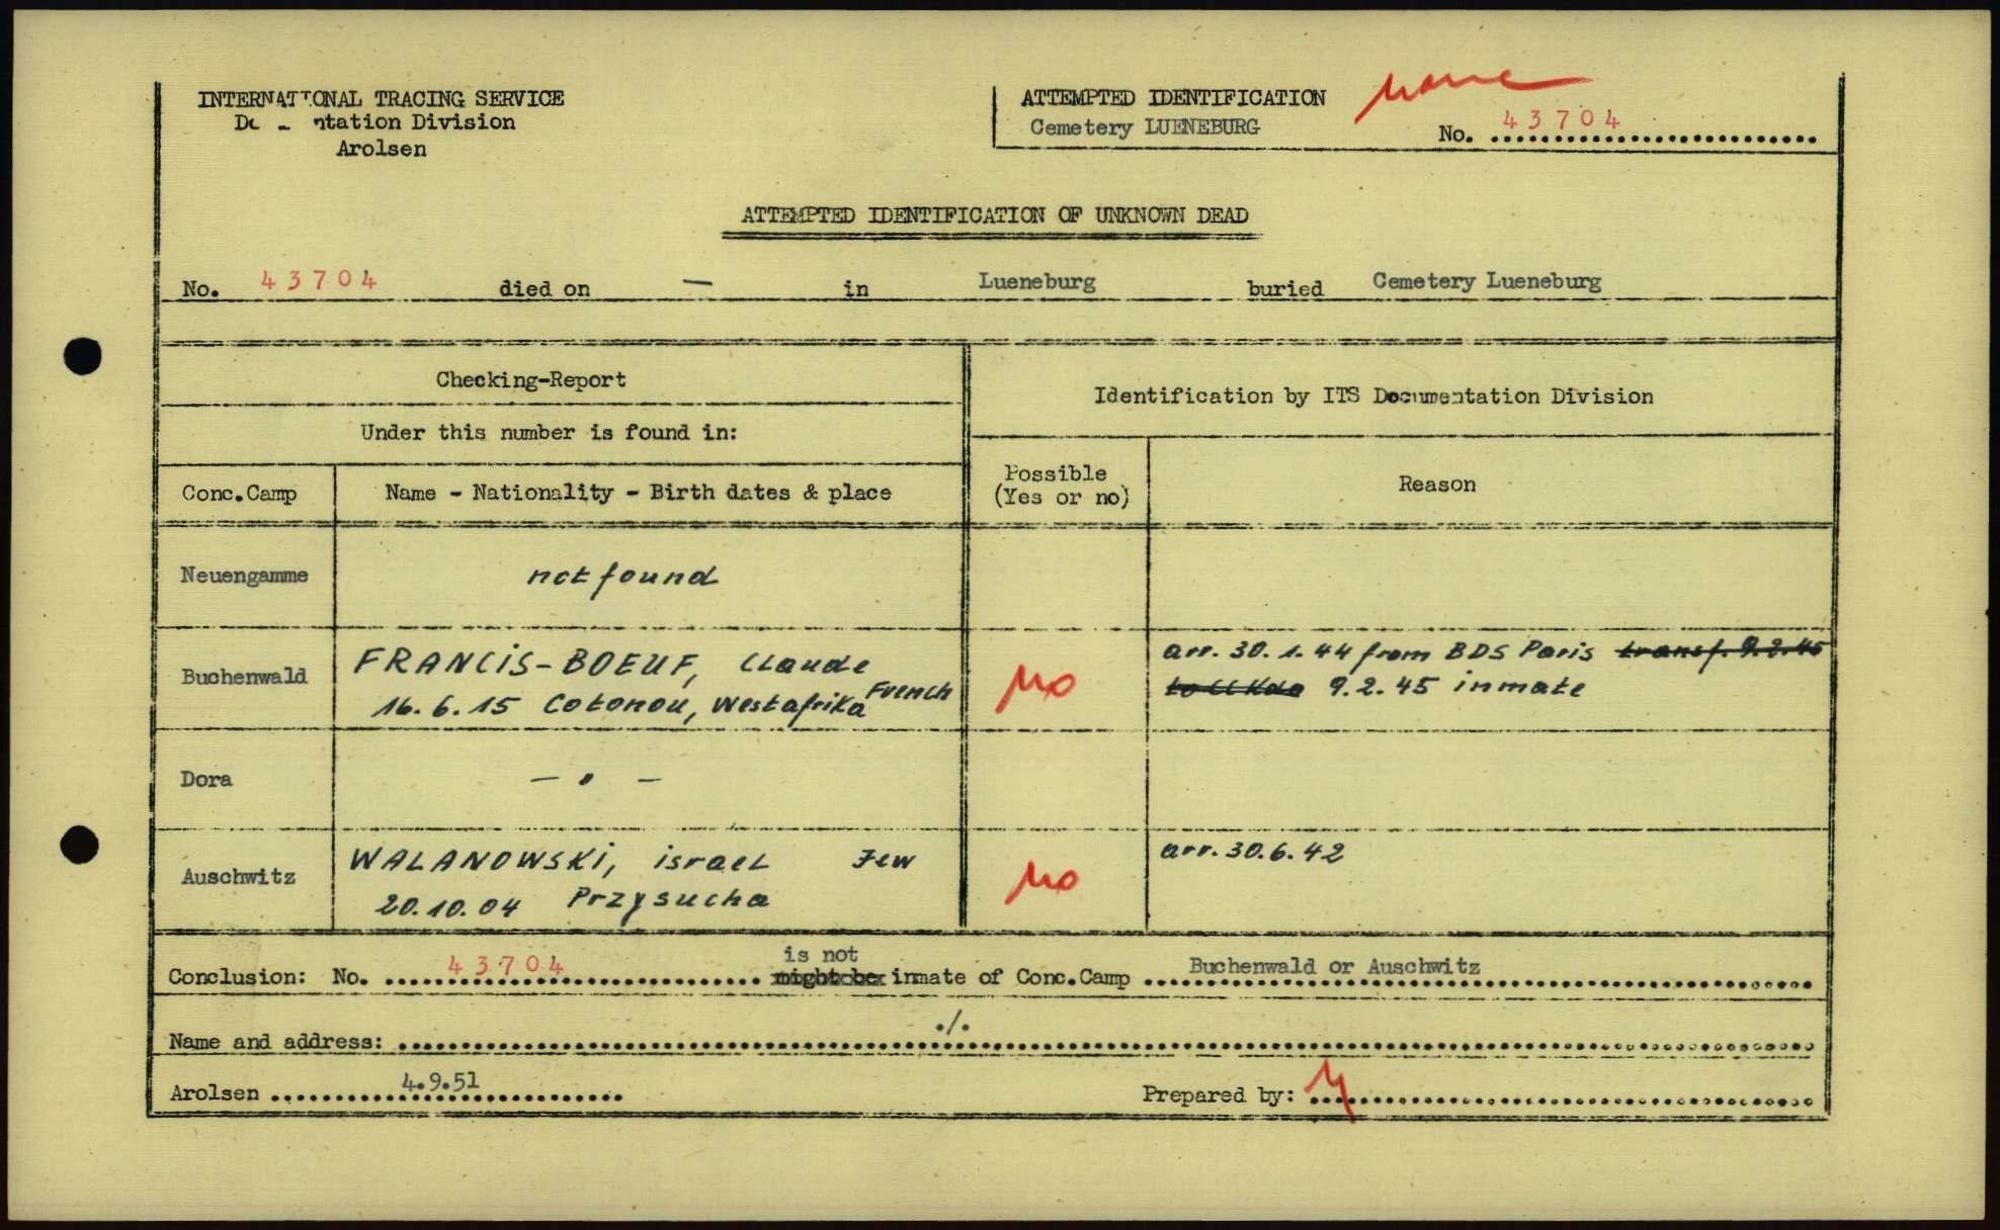 INTERNATIONAL TRACING SERVICE
Documentation Division
Arolsen
ATTEMPTED IDENTIFICATION
none
Cemetery LUENEBURG
No. 43704
ATTEMPTED IDENTIFICATION OF UNKNOWN DEAD
No. 43704 died on — in Lueneburg buried Cemetery Lueneburg
Checking-Report
Identification by ITS Documentation Division
Under this number is found in:
Conc.Camp
Name - Nationality - Birth dates & place
Possible
(Yes or no)
Reason
Neuengamme
not found
Buchenwald
FRANCIS-BOEUF, Claude
16.6.15 Cotonou, Westafrika French
no
arr. 30.1.44 from BDS Paris transf. 9.2.45
to CC Kdo 9.2.45 inmate
Dora
— " —
Auschwitz
WALANOWSKI, israel Jew
20.10.04 Przysucha
no
arr. 30.6.42
is not
Conclusion: No. 43704 might be inmate of Conc.Camp Buchenwald or Auschwitz
Name and address: ./.
Arolsen 4.9.51
Prepared by: